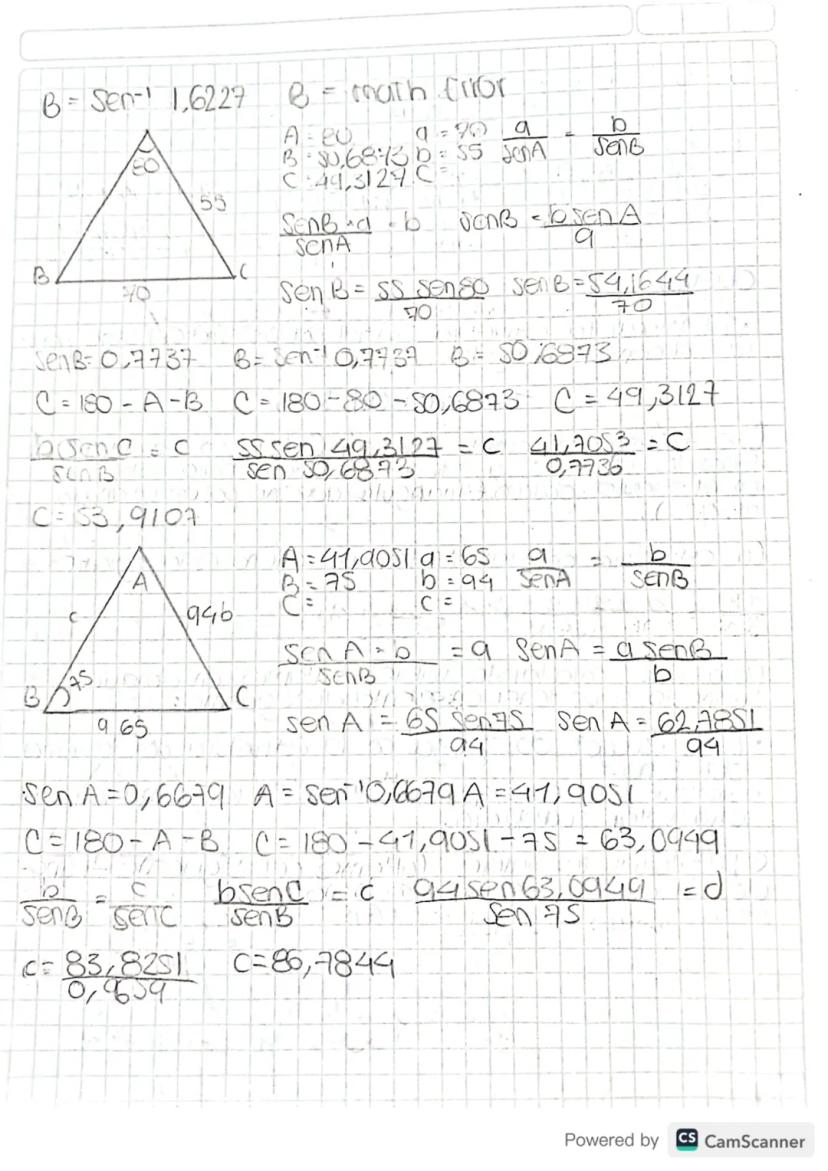 B = Sen⁻¹ 1,6227 B = math Error
A = 80 a = 70 a/senA = b/SenB
B = 50,6873 b = 55
C = 49,3127 C =
80
55
B C
70
SenB · a / senA = b senB = b senA / a
Sen B = 55 Sen80 / 70 sen B = 54,1644 / 70
SenB = 0,7737 B = Sen⁻¹ 0,7737 B = 50,6873
C = 180 - A - B C = 180 - 80 - 50,6873 C = 49,3127
b senC / senB = C 55 sen 49,3127 / sen 50,6873 = C 41,7053 / 0,7736 = C
C = 53,9107
A = 41,9051 a = 65 a/SenA = b/SenB
B = 75 b = 94
C = c =
A
c 94b
B 75 C
a 65
sen A · b / senB = a SenA = a senB / b
sen A = 65 Sen75 / 94 sen A = 62,7851 / 94
Sen A = 0,6679 A = sen⁻¹ 0,6679 A = 41,9051
C = 180 - A - B C = 180 - 41,9051 - 75 = 63,0949
b/SenB = c/senC b senC / senB = c 94 sen 63,0949 / Sen 75 = d
c = 83,8251 / 0,9659 C = 86,7844
Powered by CS CamScanner